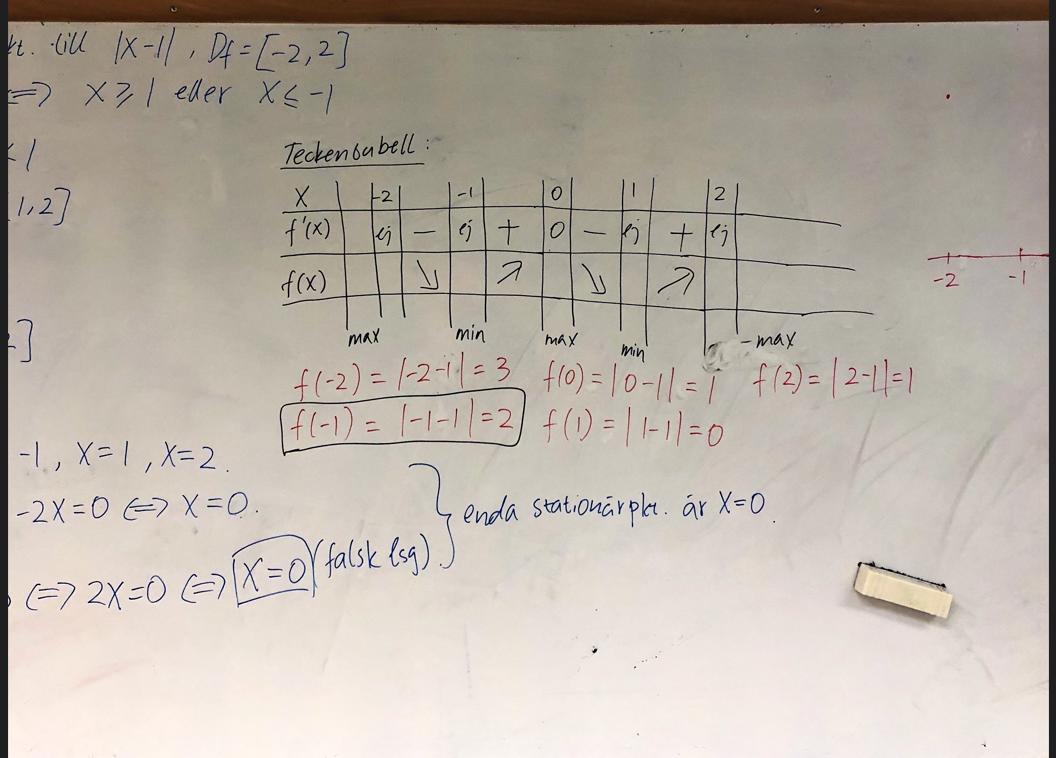 kt. till |x-1|, Df = [-2,2]
⟺ x ≥ 1 eller x ≤ -1
< 1
1,2]
Teckentabell:
x -2 -1 0 1 2
f'(x) ej − ej + 0 − ej + ej
f(x) ↘ ↗ ↘ ↗
max min max min - max
f(-2) = |-2-1| = 3 f(0) = |0-1| = 1 f(2) = |2-1| = 1
f(-1) = |-1-1| = 2 f(1) = |1-1| = 0
-2 -1
]
-1, x=1, x=2.
-2x=0 ⟺ x=0.
enda stationärpkt. är x=0.
⟺ 2x=0 ⟺ x=0 (falsk lsg).